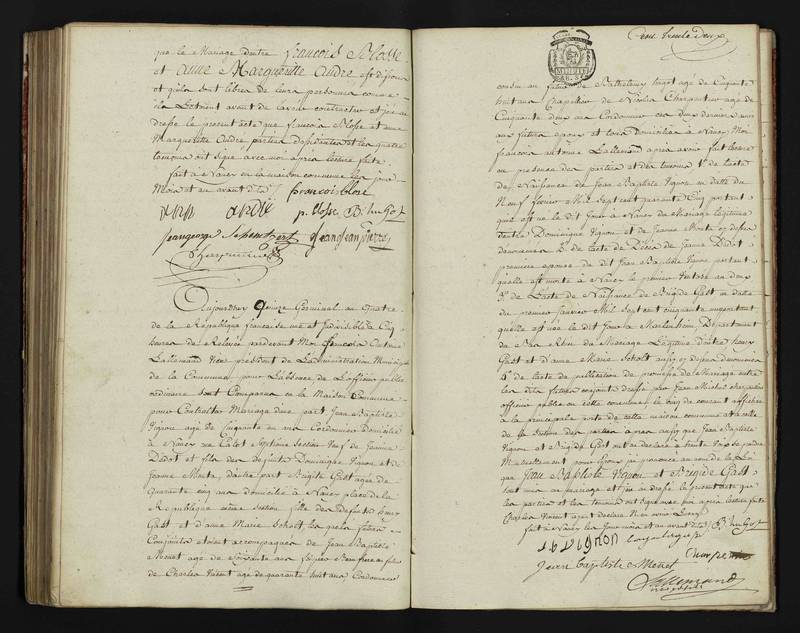 que le Mariage d'entre françois Blosse
et anne Marguerite andre
et qu'ils sont libres de leurs personnes comme
ils L'étoient avant de l'avoir contracté et j'ai
dressé le present acte que françois Blosse et anne
Marguerite andre parties et les quatre
temoins ont signé avec moi après lecture faite
fait a Nancy en la maison commune les jour
Mois et an avant dits françois blose
ann andré p. blosse B. hugot
jean george jean jean pierre
Charpentier
Aujourdhuy Quinze Germinal an Quatre
de la Republique francaise une et Indivisible a Cinq
heures de Relevée pardevant Moi francois Antoine
Lallemand Vice président de L'administration Municipale
de la Commune pour L'absence de L'officier public
ordinaire sont Comparus en la Maison Commune
pour Contracter Mariage d'une part Jean Baptiste
Vignon agé de Cinquante un ans Cordonnier Domicilié
a Nancy rue Callot Septieme Section Veuf de Jeanne
Didot et fils des defunts Dominique Vignon et de
Jeanne d'autre part Brigide Gast agée de
Quarante cinq ans domiciliée a Nancy place de la
Republique même section fille des defunts henry
Gast et d'anne Marie Scholt lesquels futurs
Conjoints etoient accompagnés de Jean Baptiste
Menet agé de Soixante ans Beau frere au futur
de Charles agé de quarante huit ans Cordonnier
trente Deux
cousin au futur de Barthelemy hugot agé de Cinquante
huit ans Chapelier de Nicolas Charpentier agé de
Cinquante deux ans Cordonnier ces deux derniers amis
aux futurs epoux et tous domiciliés a Nancy Moi
françois antoine Lallemand après avoir fait lecture
en presence des parties et des temoins 1° de l'acte
de Naissance de Jean Baptiste Vignon en datte du
Neuf fevrier Mil Sept cent quarante Cinq portant
qu'il est né le dit Jour a Nancy du Mariage légitime
entre Dominique Vignon et de Jeanne
2° de l'acte de Décès de Jeanne Didot
premiere epouse du dit Jean Baptiste Vignon portant
qu'elle est morte a Nancy le premier Ventose an deux
3° de L'acte de Naissance de Brigide Gast en datte
du premier Janvier Mil Sept cent cinquante un portant
qu'elle est née le dit Jour a Marlenheim Département
du Bas Rhin du Mariage Légitime d'entre henry
Gast et d'anne Marie Scholt aussy
4° de l'acte de publication de promesse de Mariage entre
les dits futurs conjoints dressé par Jean Michel
officier public en cette commune le cinq du courant affiché
a la principale porte de cette maison commune et a celle
de la Section des parties après aussy que Jean Baptiste
Vignon et Brigide Gast ont eu déclaré a haute Voix se prendre
Mutuellement pour Epoux j'ai prononcé au nom de la Loi
que Jean Baptiste Vignon et Brigide Gast
sont unis en mariage et j'ai dressé le present acte que
les parties et les temoins ont signé avec moi après lecture faite
Charles ayant déclaré
fait a Nancy les jour mois et an avant dits B. hugot
J B Vignon
Charpentier
Jean baptiste Menet
Lallemand